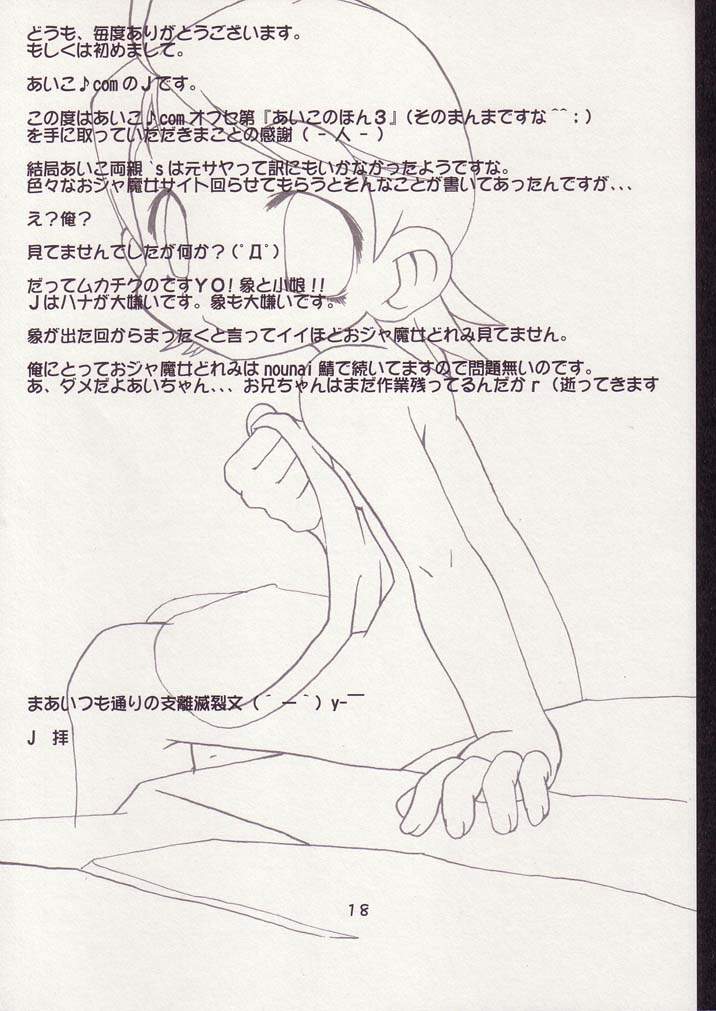 どうも、毎度ありがとうございます。
もしくは初めまして。
あいこ♪comのJです。
この度はあいこ♪comオフセ第『あいこのほん3』(そのまんまですな^^;)
を手に取っていただきまことの感謝(-人-)
結局あいこ両親`sは元サヤって訳にもいかなかったようですな。
色々なおジャ魔女サイト回らせてもらうとそんなことが書いてあったんですが、、、
え?俺?
見てませんでしたが何か?(ﾟДﾟ)
だってムカチクのですYO!象と小娘!!
Jはハナが大嫌いです。象も大嫌いです。
象が出た回からまったくと言ってイイほどおジャ魔女どれみ見てません。
俺にとっておジャ魔女どれみはnounai鯖で続いてますので問題無いのです。
まあいつも通りの支離滅裂文(´ー`)y-~~
J 拝
18